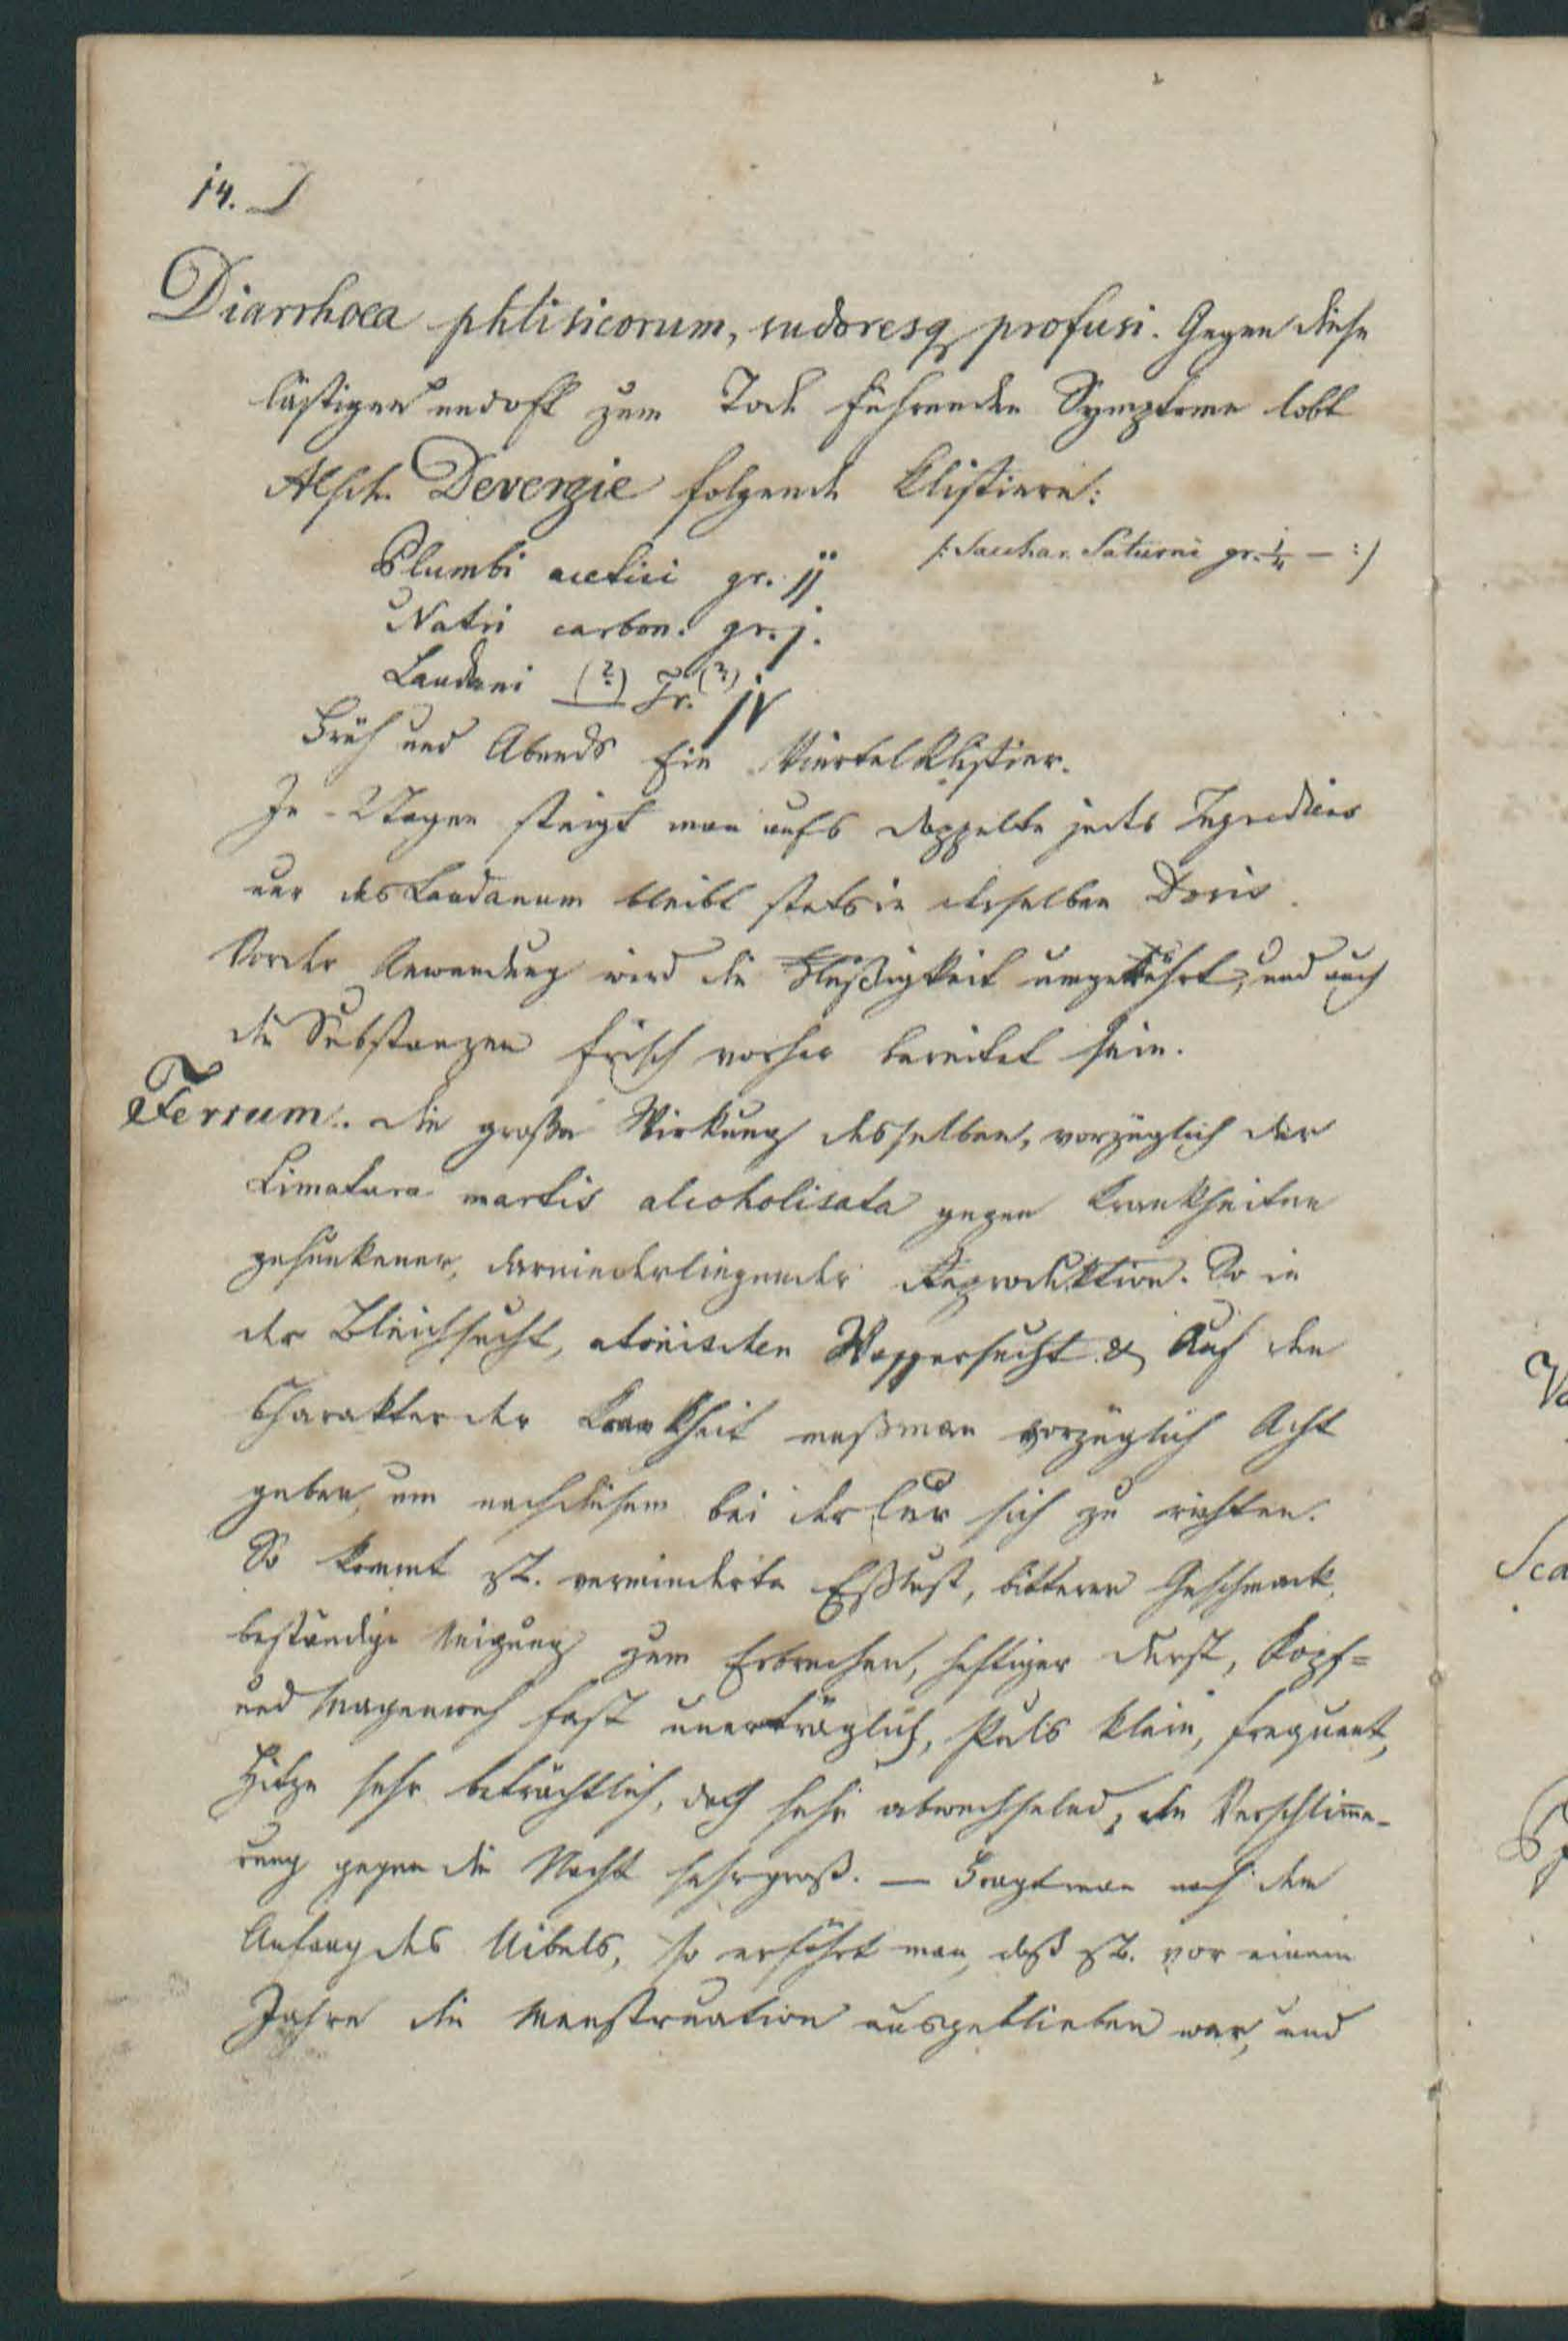 14. D
Diarrhoea phtisicorum, sudoresq profusi. Gegen diese
lästigen und oft zum Tode führenden Symptome lobt
Alph. Devergie folgende Klistiere:
Plumbi acetici gr. jj /: Sacchar. Saturni gr. – :/
Natri carbon. gr. j.
Laudani (?) Gr. (?) jv
Früh und Abends Ein Viertelklistier.
In Tagen steigt man aufs doppelte jedes Ingrediens
nur das Laudanum bleibt stets in derselben Dosis.
Vor der Anwendung wird die Flüßigkeit umgerührt, und auch
die Substanzen frisch vorher bereitet sein.
Ferrum. Die große Wirkung desselben, vorzüglich der
Limatura martis alcoholisata gegen Krankheiten
gesunkener, darniederliegender Reproduktion. So in
der Bleichsucht, atonischen Wassersucht & Auf den
Charakter der Krankheit muß man vorzüglich Acht
geben, um nach diesem bei der Cur sich zu richten.
So kommt zB. verminderte Eßlust, bitterer Geschmack,
beständige Neigung zum Erbrechen, heftiger Durst, Kopf=
und Magenweh fast unerträglich, Puls klein, frequent,
Hitze sehr beträchtlich, doch sehr abwechselnd, die Verschlim̄e-
rung gegen die Nacht sehr groß. — Fragt man nach dem
Anfang des Uibels, so erfährt man, daß zB. vor einem
Jahre die Menstruation ausgeblieben war, und
Va
Sca